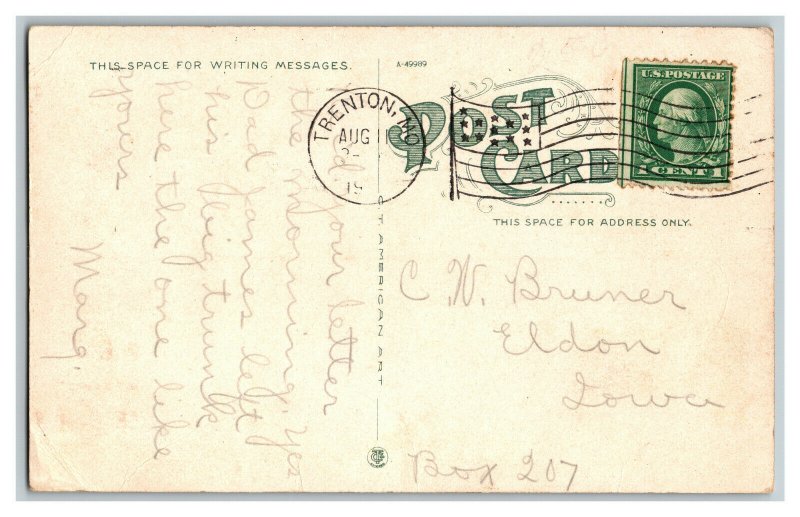 THIS SPACE FOR WRITING MESSAGES.
A-49989
POST CARD
THIS SPACE FOR ADDRESS ONLY.
TRENTON, MO
AUG 11
19
U.S. POSTAGE
1 CENT 1
your letter
the morning. Yes
Dad James left
his big trunk
here the one like
yours
Marg.
ST AMERICAN ART
C. W. Bruner
Eldon
Iowa
Box 207